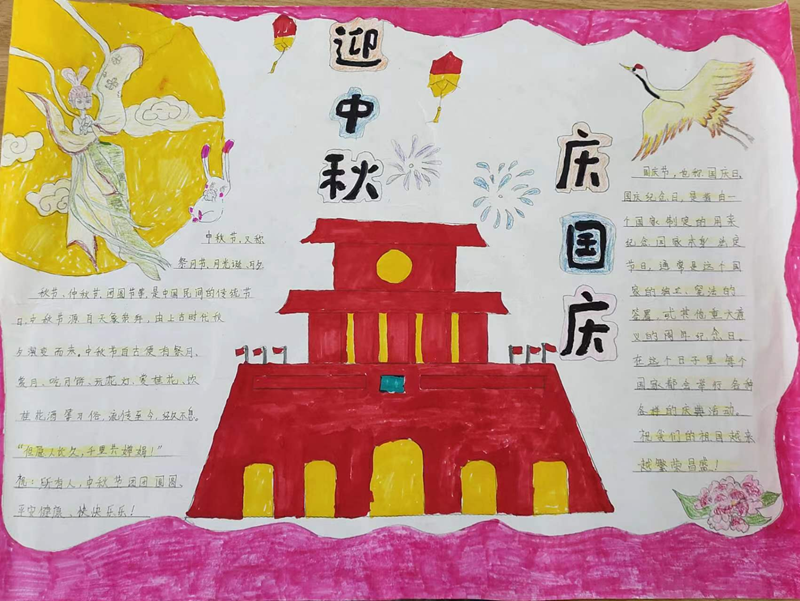 迎中秋
庆国庆
中秋节,又称
祭月节、月光诞、月夕
秋节、仲秋节、团圆节等,是中国民间的传统节
日。中秋节源自天象崇拜,由上古时代秋
夕祭月演变而来。中秋节自古便有祭月、
赏月、吃月饼、玩花灯、赏桂花、饮
桂花酒等习俗,流传至今,经久不息。
“但愿人长久,千里共婵娟!”
祝:所有人,中秋节团团圆圆、
平安健康、快快乐乐!
国庆节,也称国庆日、
国庆纪念日,是指由一
个国家制定的用来
纪念国家本身的法定
节日,通常是这个国
家的独立、宪法的
签署、或其他重大意
义的周年纪念日。
在这个日子里每个
国家都会举行各种
各样的庆典活动。
祝我们的祖国越来
越繁荣昌盛!